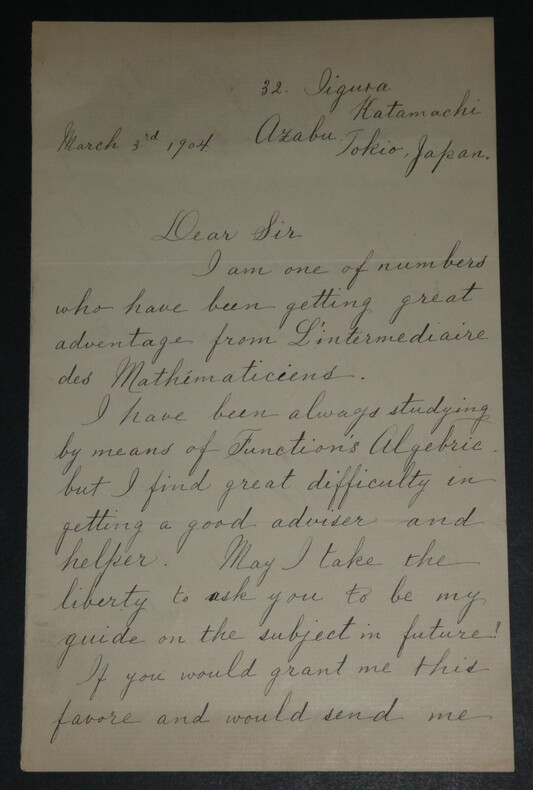 32. Iigura
Katamachi
March 3rd 1904 Azabu.
Tokio, Japan.
Dear Sir
I am one of numbers
who have been getting great
adventage from L'intermediaire
des Mathématiciens.
I have been always studying
by means of Function's Algebric.
but I find great difficulty in
getting a good adviser and
helper. May I take the
liberty to ask you to be my
guide on the subject in future!
If you would grant me this
favore and would send me